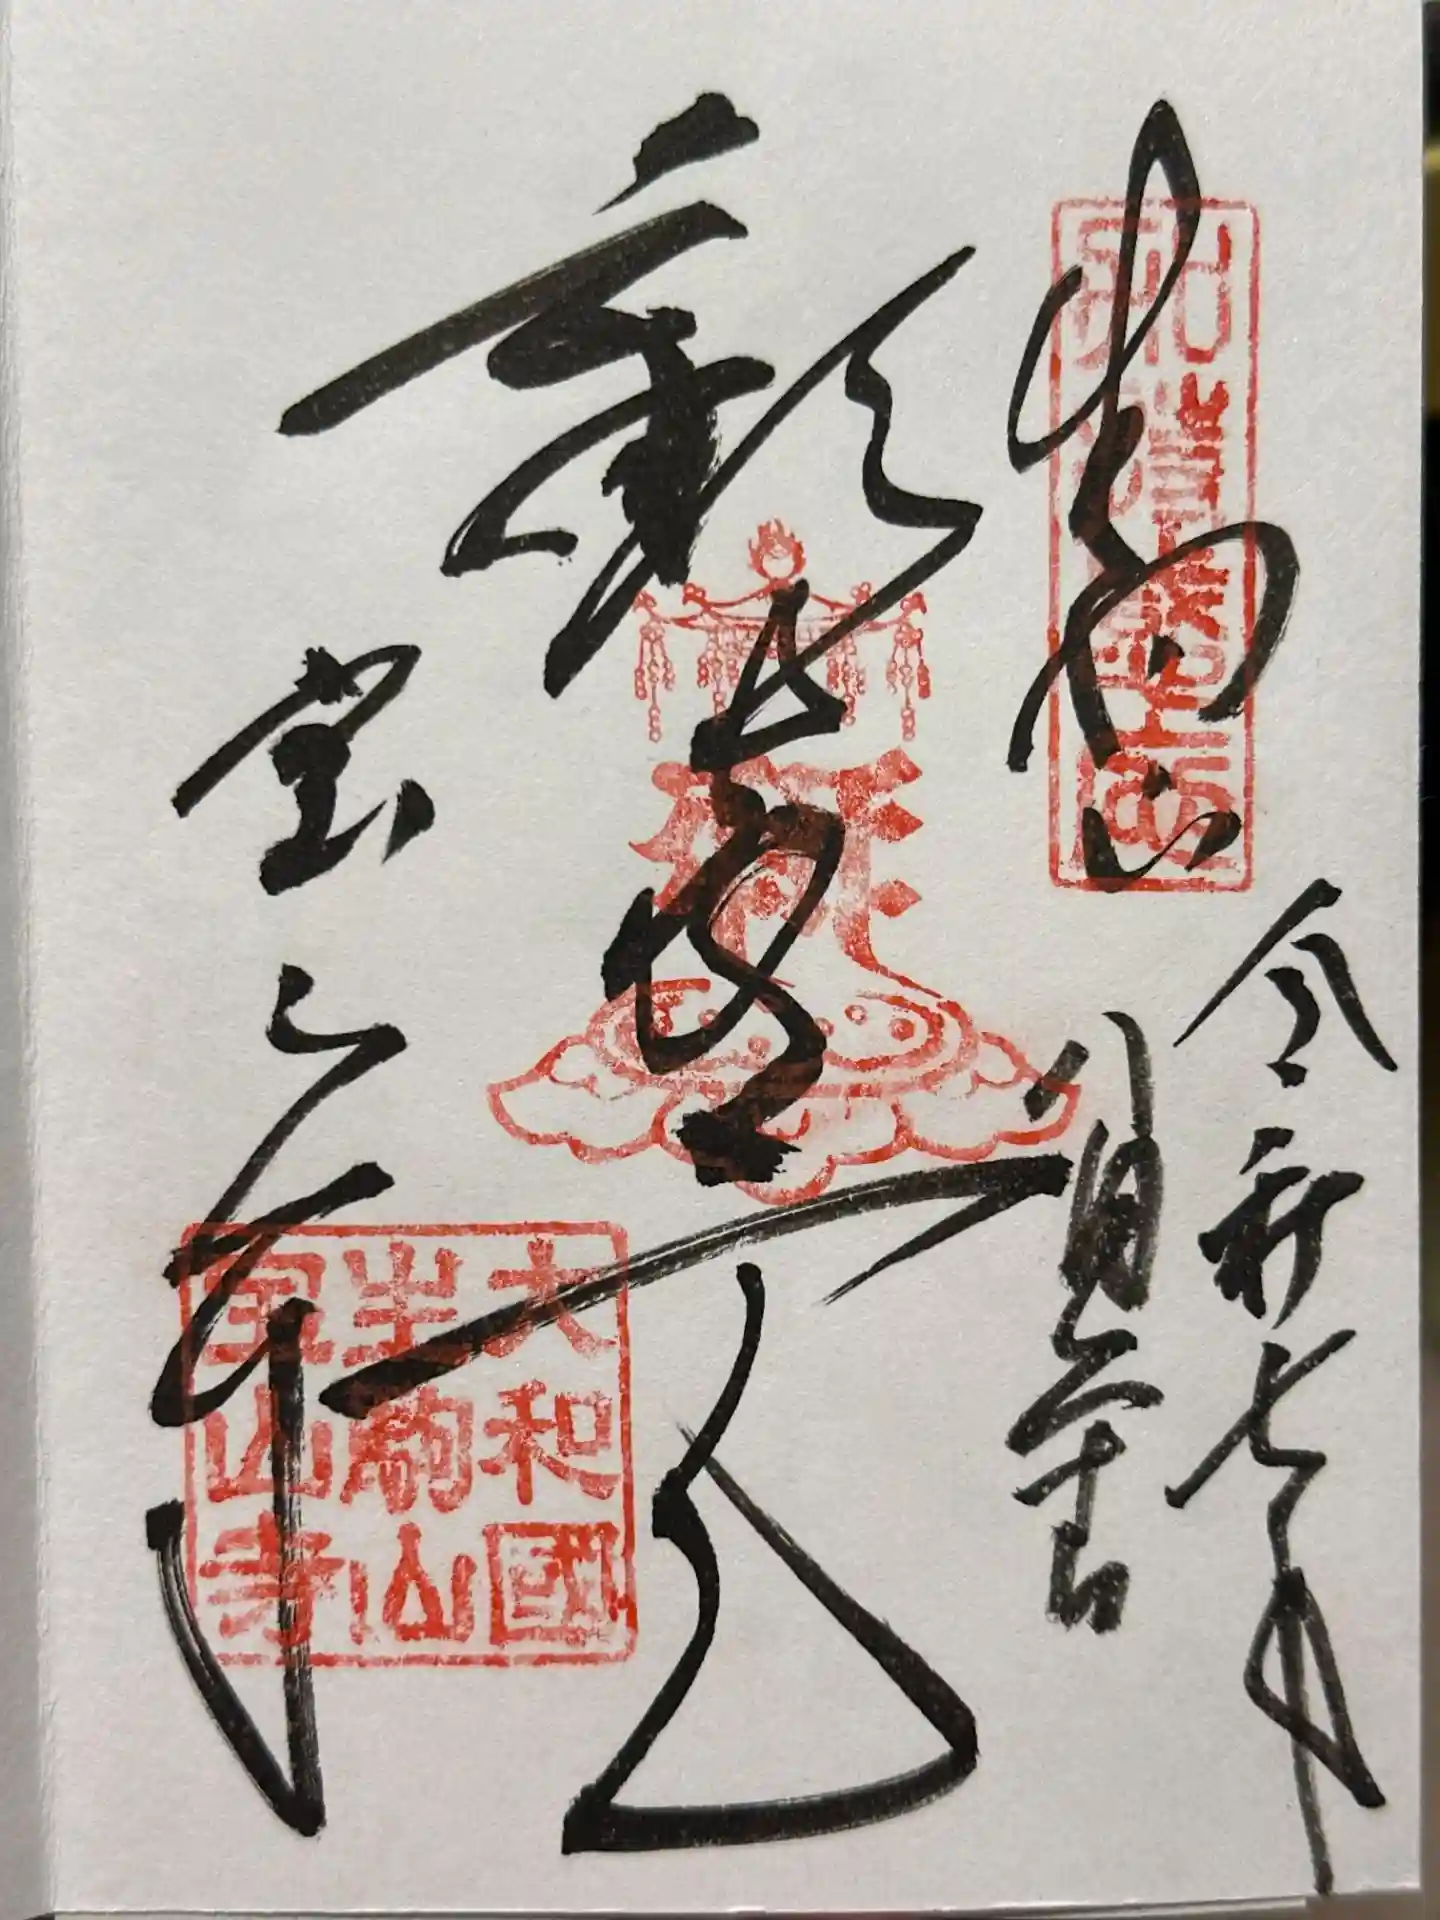 生駒山
令和七年
八月
歓喜天
宝山寺
大和國
生駒山
宝山寺